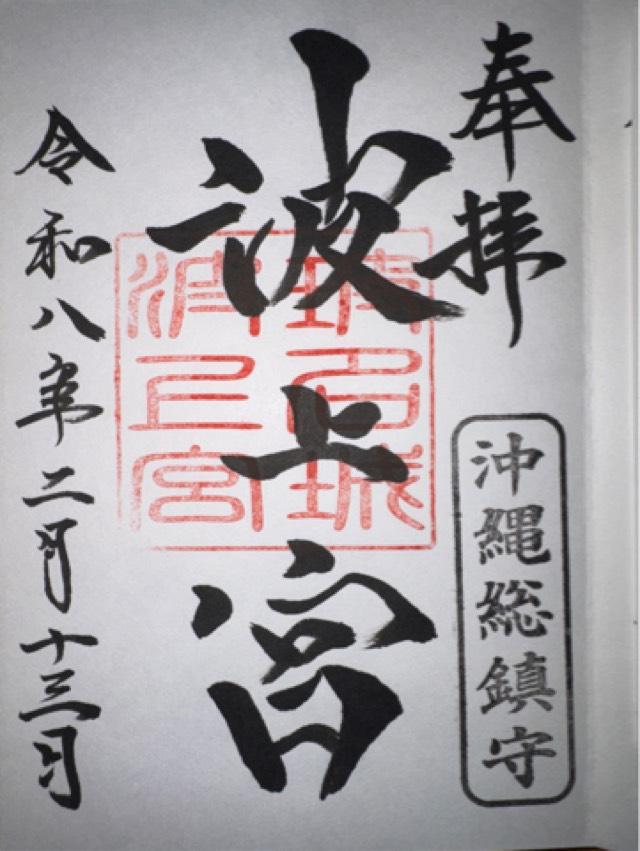 奉拝
沖縄総鎮守
波上宮
波上宮
令和八年二月十三日